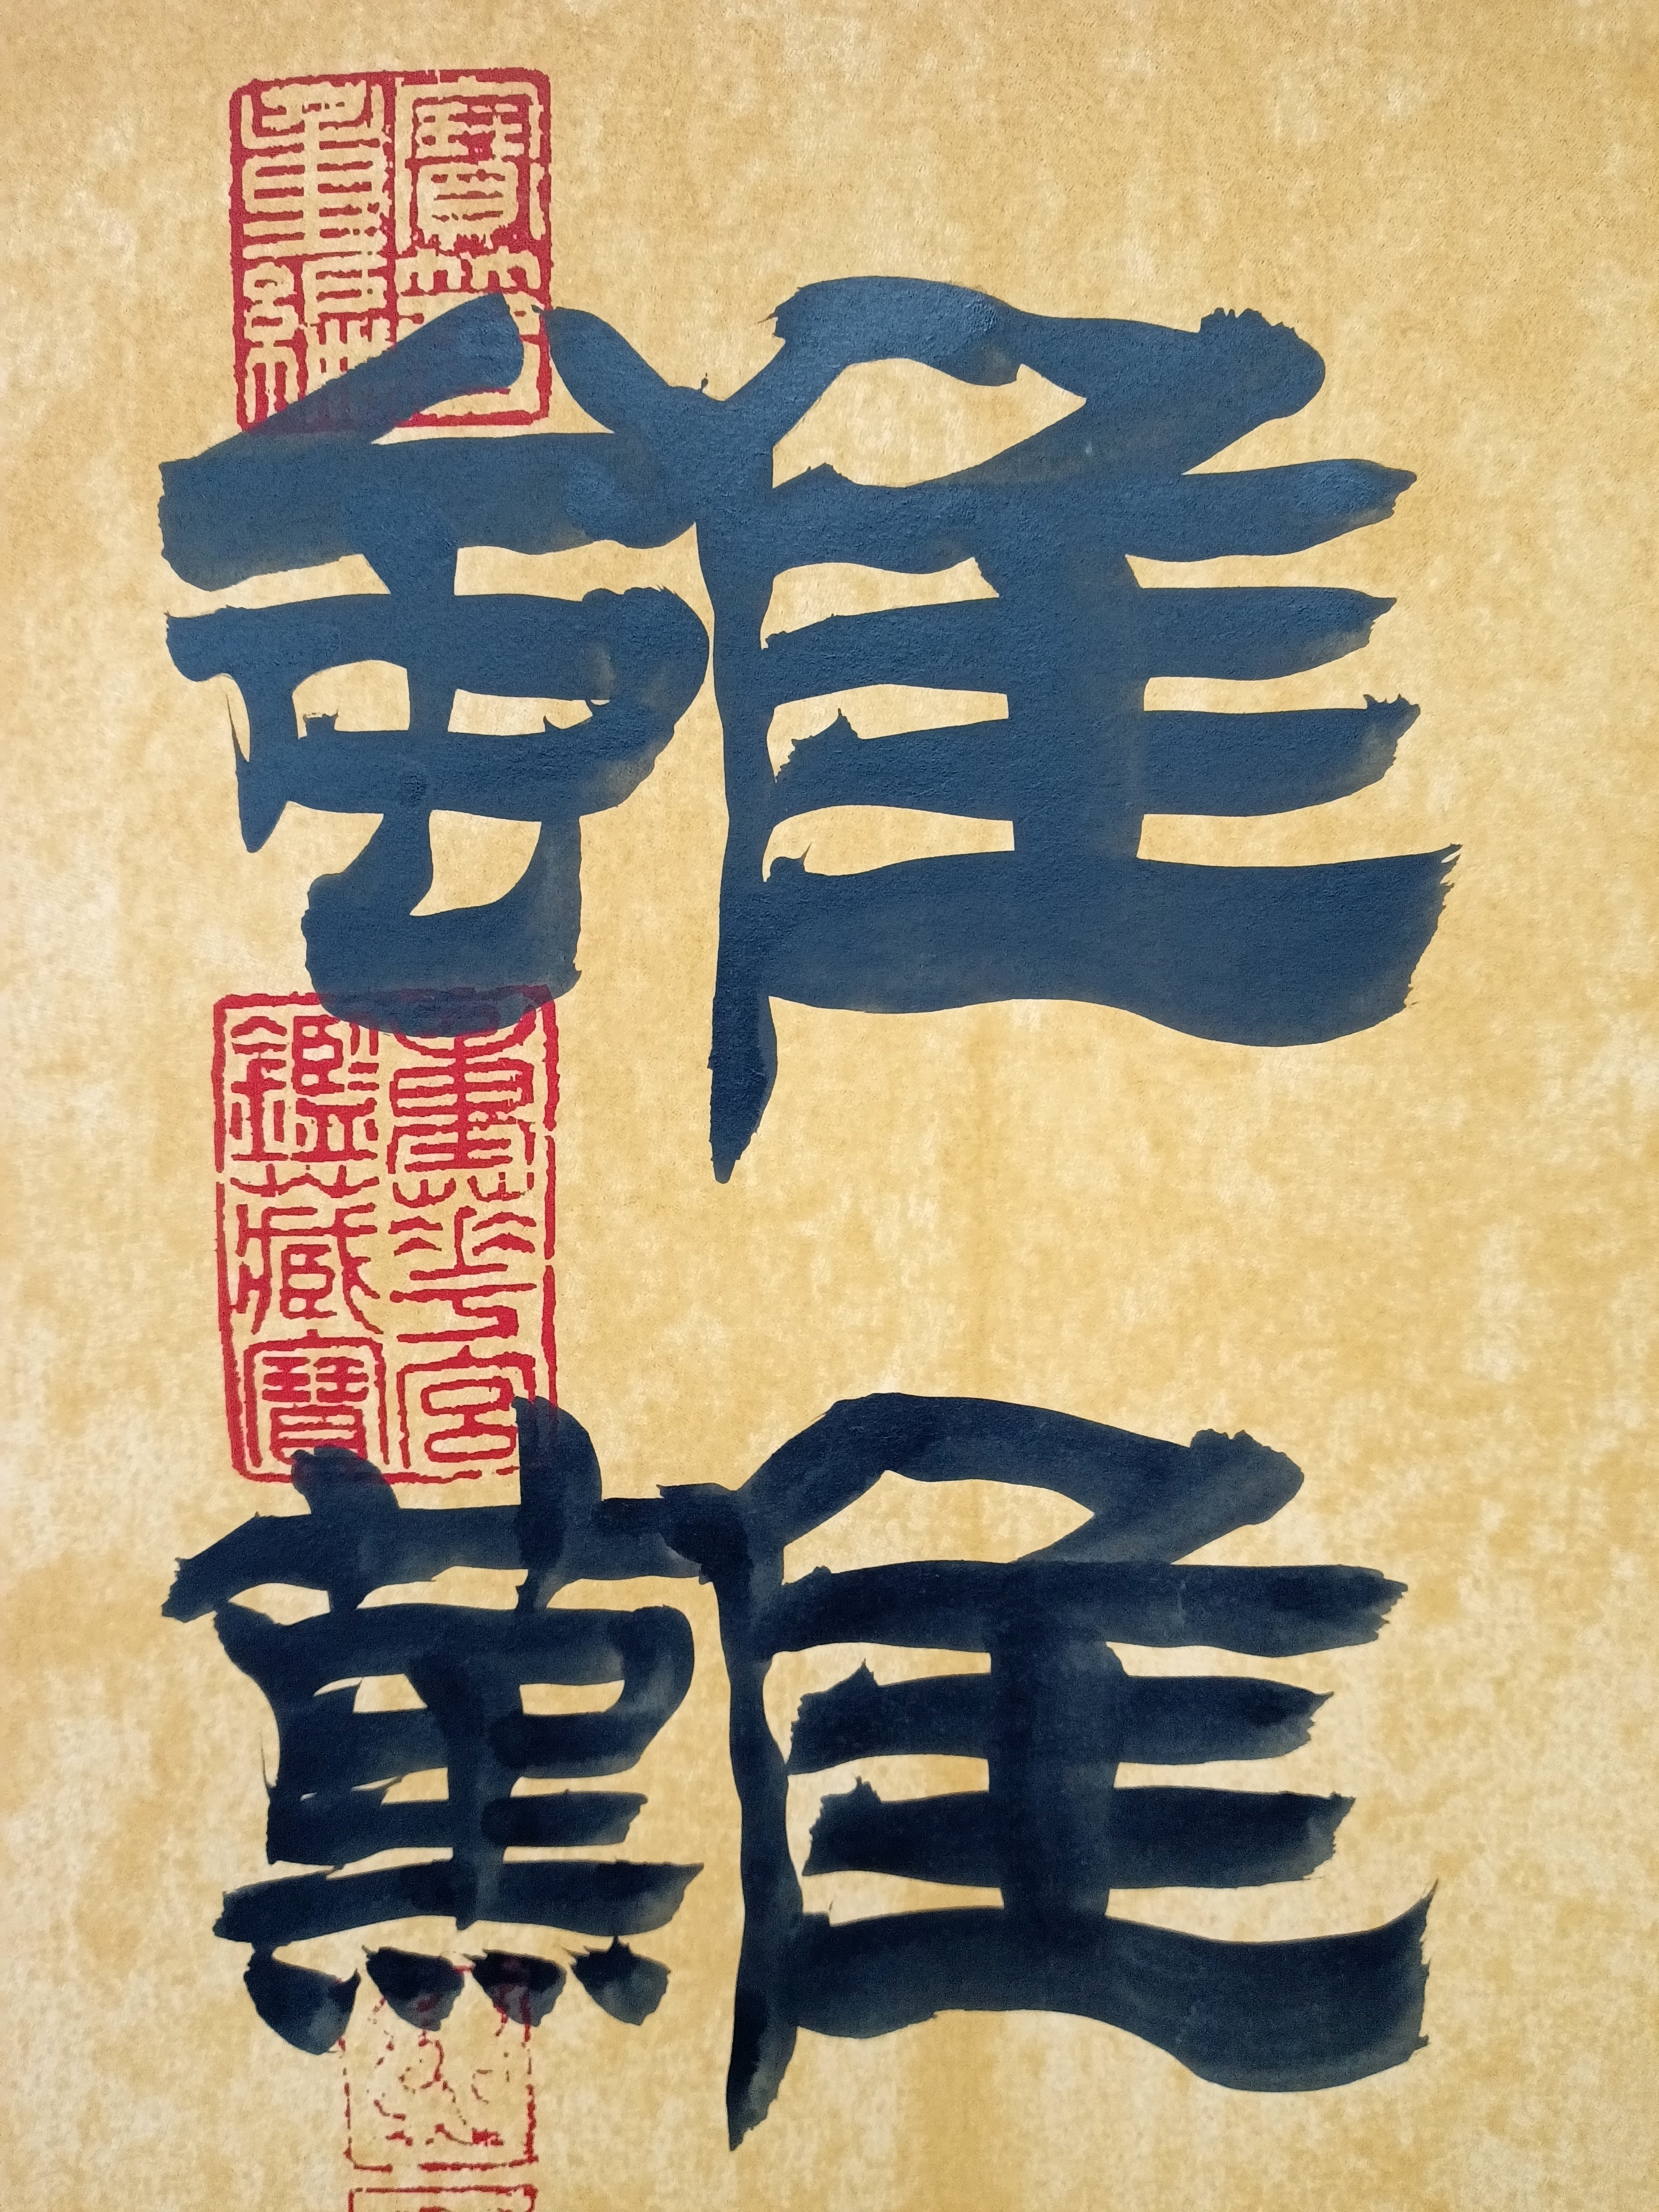 雖難
寶笈
重編
重華宮
鑑藏寶